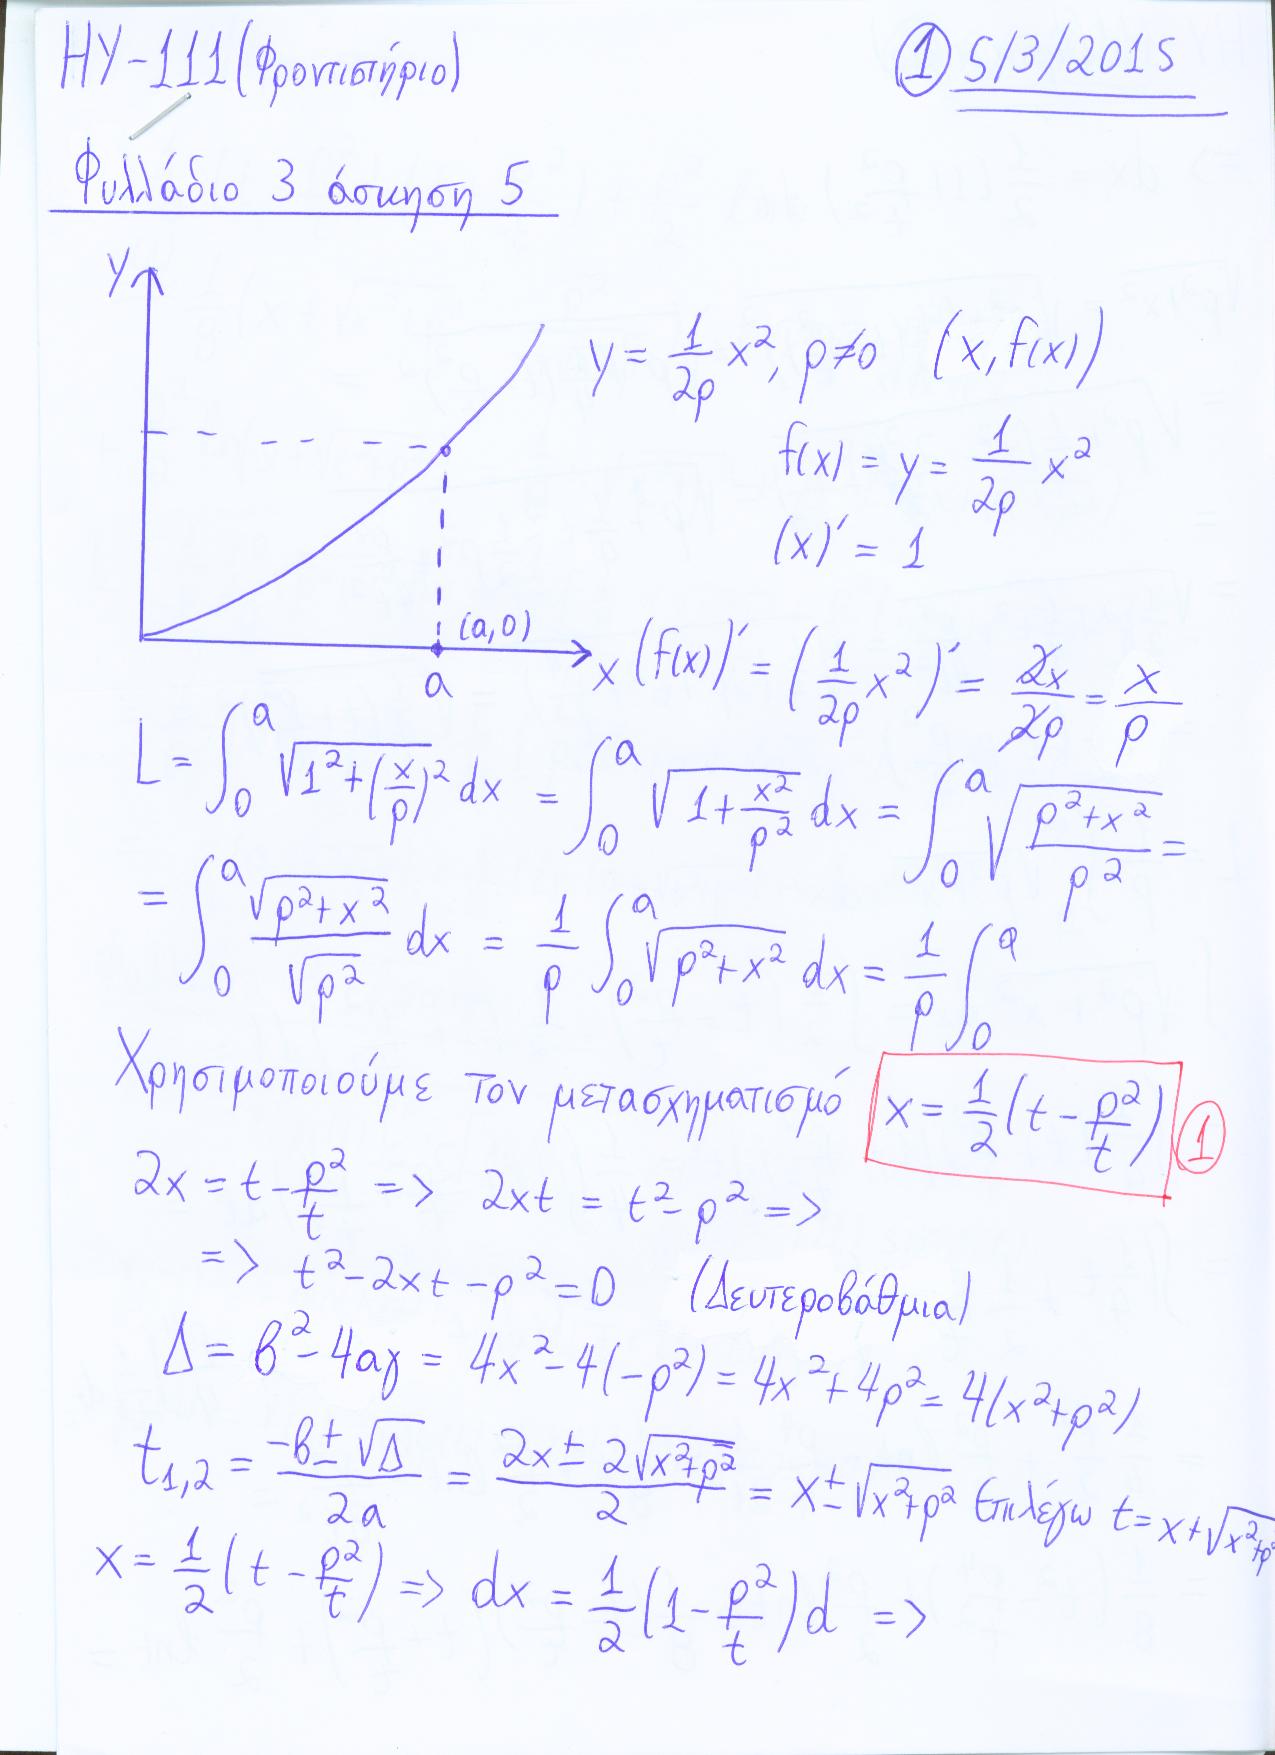 ΗΥ-111 (Φροντιστήριο)
① 5/3/2015
Φυλλάδιο 3 άσκηση 5
y
y = 1/2p x², p≠0 (x, f(x))
f(x) = y = 1/2p x²
(x)' = 1
(a,0)
a
x
(f(x))' = (1/2p x²)' = 2x/2p = x/p
L = ∫₀ᵃ √(1²+(x/p)²) dx = ∫₀ᵃ √(1+x²/p²) dx = ∫₀ᵃ √((p²+x²)/p²) =
= ∫₀ᵃ √(p²+x²)/√(p²) dx = 1/p ∫₀ᵃ √(p²+x²) dx = 1/p ∫₀ᵃ
Χρησιμοποιούμε τον μετασχηματισμό x = 1/2 (t - p²/t) ①
2x = t - p²/t => 2xt = t² - p² =>
=> t² - 2xt - p² = 0 (Δευτεροβάθμια)
Δ = β² - 4αγ = 4x² - 4(-p²) = 4x² + 4p² = 4(x²+p²)
t₁,₂ = (-β ± √Δ)/2α = (2x ± 2√(x²+p²))/2 = x ± √(x²+p²) επιλέγω t = x + √(x²+p²
x = 1/2 (t - p²/t) => dx = 1/2 (1 - p²/t) d =>